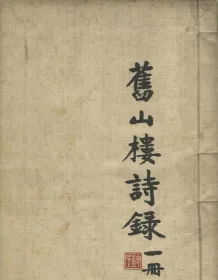 舊山樓詩錄
一冊